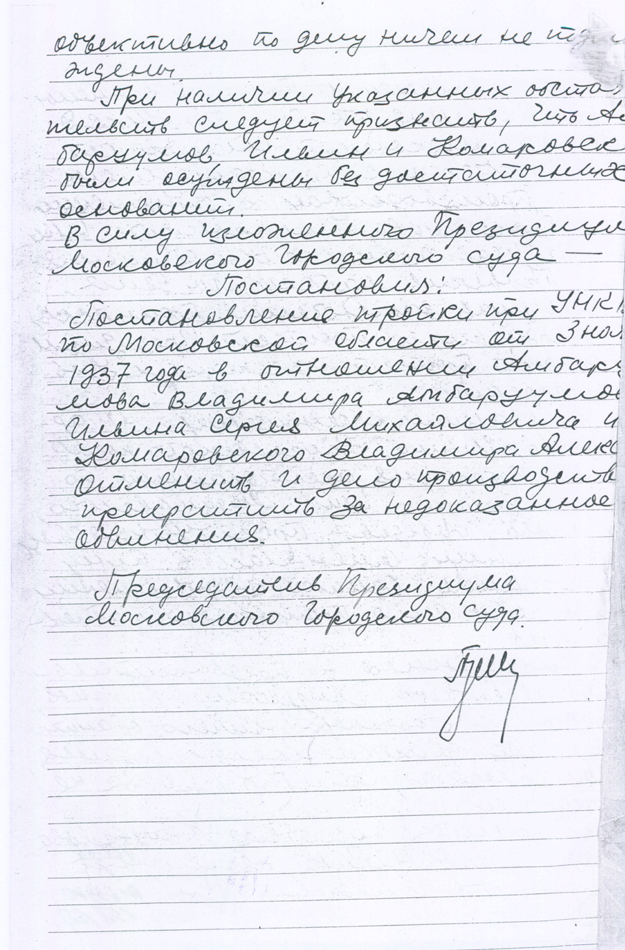 объективно по делу ничем не подтв
ждены.
При наличии указанных обстоя
тельств следует признать, что Ам
барцумов, Ильин и Комаровск
были осуждены без достаточных
оснований.
В силу изложенного Президиум
Московского Городского суда —
Постановил:
Постановление тройки при УНКВ
по Московской области от 3 ноя
1937 года в отношении Амбарц
мова Владимира Амбарцумо
Ильина Сергея Михайловича и
Комаровского Владимира Алекс
отменить и дело производств
прекратить за недоказанно
обвинения.
Председатель Президиума
Московского Городского суда.